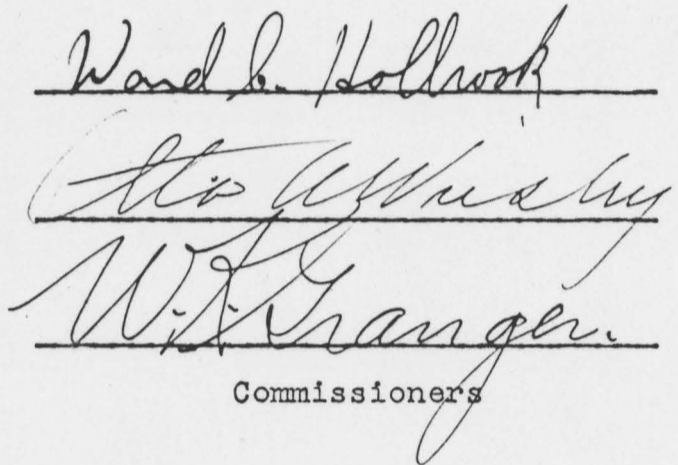 Ward C. Holbrook
Otto A. Wiesley
W.K. Granger.
Commissioners